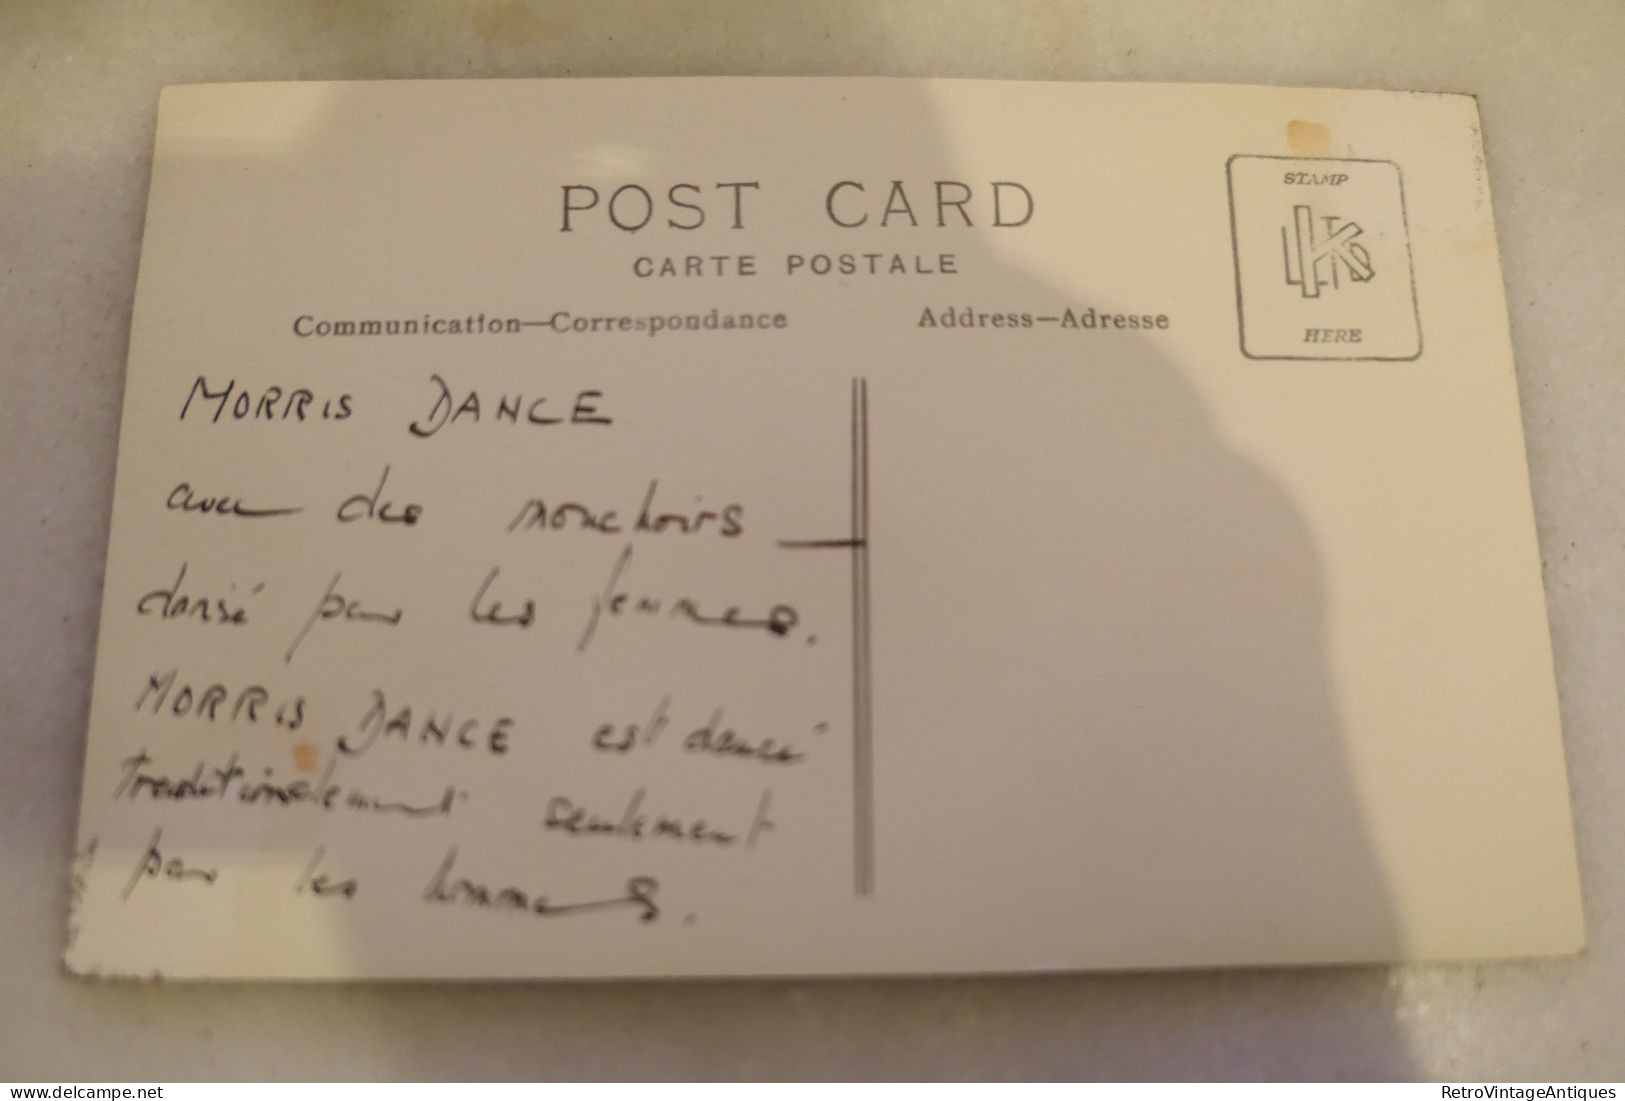 POST CARD
CARTE POSTALE
Communication—Correspondance
Address—Adresse
STAMP
HERE
MORRIS DANCE
avec des mouchoirs
dansé par les femmes.
MORRIS DANCE est dansé
traditionalement seulement
par les hommes.
delcampe.net
RetroVintageAntiques